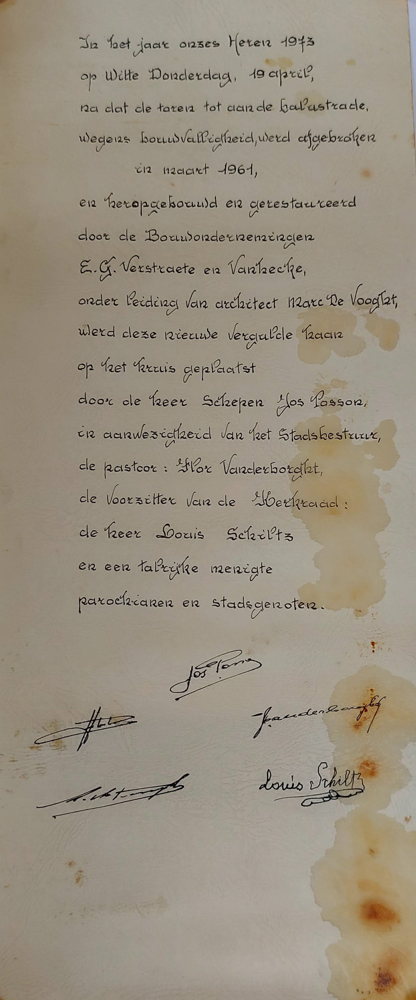 In het jaar onzes Heren 1973
op Witte Donderdag, 19 april,
na dat de toren tot aan de balustrade,
wegens bouwvalligheid, werd afgebroken
in maart 1961,
en heropgebouwd en gerestaureerd
door de Bouwondernemingen
E.G. Verstraete en Vanhecke,
onder leiding van architect Marc De Vooght,
werd deze nieuwe vergulde haan
op het kruis geplaatst
door de heer Schepen Jos Posson,
in aanwezigheid van het Stadsbestuur,
de pastoor : Flor Vanderborght,
de voorzitter van de Kerkraad :
de heer Louis Schiltz
en een talrijke menigte
parochianen en stadsgenoten.
Jos Posson
Vanderborght
Louis Schiltz